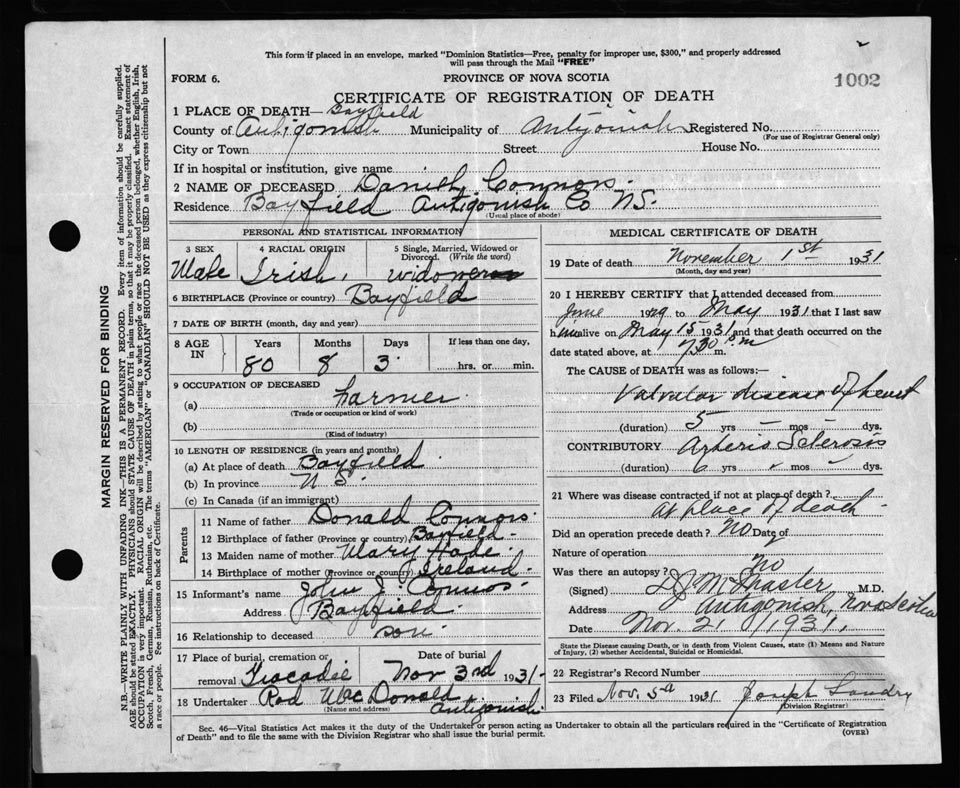 This form if placed in an envelope, marked "Dominion Statistics—Free, penalty for improper use, $300," and properly addressed
will pass through the Mail "FREE"
FORM 6.
PROVINCE OF NOVA SCOTIA
1002
CERTIFICATE OF REGISTRATION OF DEATH
1 PLACE OF DEATH— Bayfield
County of Antigonish Municipality of Antigonish Registered No.
(For use of Registrar General only)
City or Town Street House No.
If in hospital or institution, give name
2 NAME OF DECEASED Daniel Connors.
Residence Bayfield Antigonish Co NS.
(Usual place of abode)
PERSONAL AND STATISTICAL INFORMATION
3 SEX 4 RACIAL ORIGIN 5 Single, Married, Widowed or
Divorced. (Write the word)
Male Irish, widower
6 BIRTHPLACE (Province or country) Bayfield
7 DATE OF BIRTH (month, day and year)
8 AGE IN Years Months Days If less than one day,
80 8 3 hrs. or min.
9 OCCUPATION OF DECEASED
(a) Farmer
(Trade or occupation or kind of work)
(b)
(Kind of industry)
10 LENGTH OF RESIDENCE (in years and months)
(a) At place of death Bayfield
(b) In province N S.
(c) In Canada (if an immigrant)
Parents
11 Name of father Donald Connors.
12 Birthplace of father (Province or country) Bayfield
13 Maiden name of mother Mary
14 Birthplace of mother (Province or country) Ireland.
15 Informant's name John J. Connors
Address Bayfield.
16 Relationship to deceased son
17 Place of burial, cremation or Date of burial
removal Tracadie Nov 3rd 1931-
18 Undertaker Rod MacDonald
(Name and address) Antigonish.
MEDICAL CERTIFICATE OF DEATH
19 Date of death November 1st 1931
(Month, day and year)
20 I HEREBY CERTIFY that I attended deceased from
June 1929 to May 1931 that I last saw
him alive on May 15 1931 and that death occurred on the
date stated above, at 7 30 p.m m.
The CAUSE of DEATH was as follows:—
Valvular disease of heart
(duration) 5 yrs — mos — dys.
CONTRIBUTORY Arterio Sclerosis
(duration) 6 yrs mos — dys.
21 Where was disease contracted if not at place of death?
At place of death
Did an operation precede death? No Date of
Nature of operation
Was there an autopsy? No
(Signed) M.D.
Address Antigonish, Nova Scotia
Date Nov. 21 / 1931.
State the Disease causing Death, or in death from Violent Causes, state (1) Means and Nature
of Injury, (2) whether Accidental, Suicidal or Homicidal.
22 Registrar's Record Number
23 Filed Nov. 5th 1931 Joseph Landry
(Division Registrar)
Sec. 46—Vital Statistics Act makes it the duty of the Undertaker or person acting as Undertaker to obtain all the particulars required in the "Certificate of Registration
of Death" and to file the same with the Division Registrar who shall issue the burial permit.
(OVER)
MARGIN RESERVED FOR BINDING
N.B.—WRITE PLAINLY WITH UNFADING INK—THIS IS A PERMANENT RECORD. Every item of information should be carefully supplied.
AGE should be stated EXACTLY. PHYSICIANS should STATE CAUSE OF DEATH in plain terms, so that it may be properly classified. Exact statement of
OCCUPATION is very important. RACIAL ORIGIN will be described by stating to what people or race the deceased person belonged, whether English, Irish,
Scotch, French, German, Russian, Ruthenian, etc. The terms "AMERICAN" or "CANADIAN" SHOULD NOT BE USED as they express citizenship but not
a race or people. See instructions on back of Certificate.